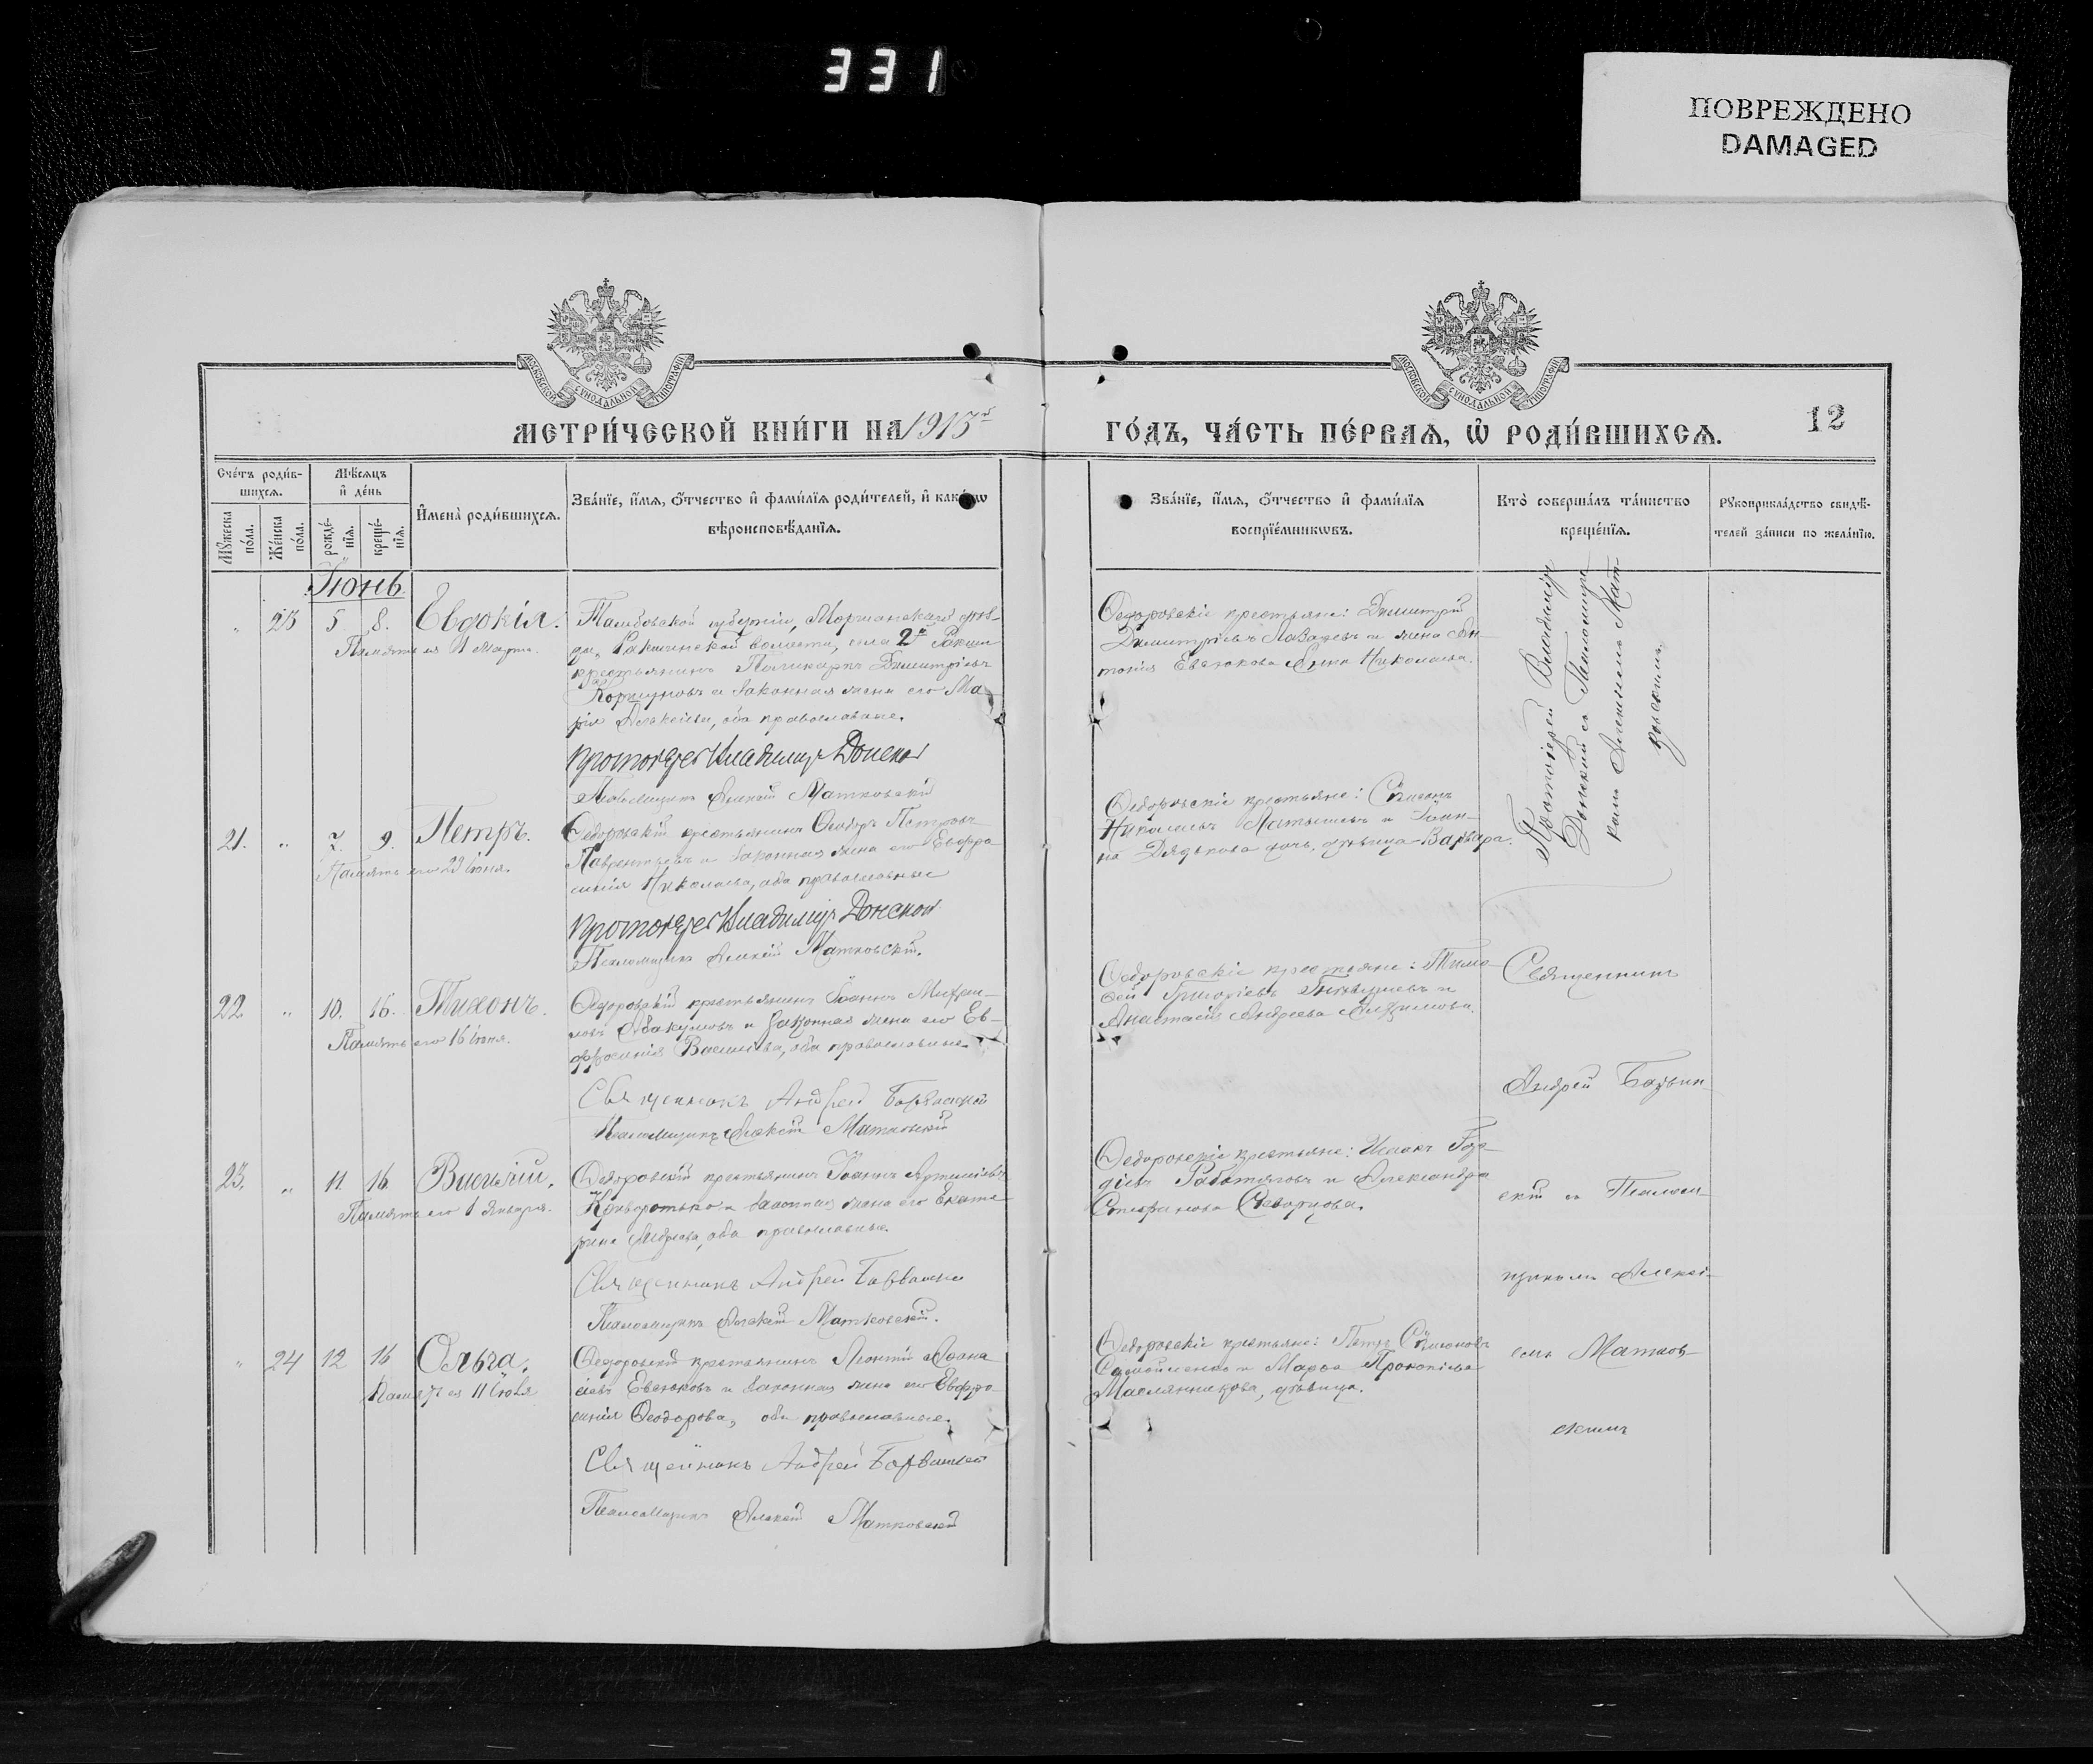 331
ПОВРЕЖДЕНО
DAMAGED
МОСКОВСКОЙ СУНОДАЛЬНОЙ ТИПОГРАФІИ
МОСКОВСКОЙ СУНОДАЛЬНОЙ ТИПОГРАФІИ
МЕТРИ́ЧЕСКОЙ КНИ́ГИ НА 1913й
ГО́ДЪ, ЧА́СТЬ ПЕ́РВАѦ, Ѡ҆ РОДИ́ВШИХСѦ.
12
Сче́тъ роди́в-
шихсѧ.
Мѣ́сѧцъ
и҆ де́нь
Мꙋ́жеска по́ла.
Же́нска по́ла.
рожде́-нїѧ.
креще́-нїѧ.
И҆мена̀ роди́вшихсѧ.
Зва́нїе, и҆́мѧ, ѻ҆́тчество и҆ фами́лїѧ роди́телей, и҆ како́гѡ
вѣроисповѣ́данїѧ.
Зва́нїе, и҆́мѧ, ѻ҆́тчество и҆ фами́лїѧ
воспрїе́мникѡвъ.
Кто̀ соверша́лъ та́инство
креще́нїѧ.
Рꙋкоприкла́дство свидѣ́-
телей за́писи по жела́нїю.
Іюнь
" 23 5 8. Евдокія.
Память ея 1 марта.
Тамбовской губерніи, Моршанскаго уѣз-
да, Ракшинской волости, села 2й Ракши
крестьянинъ Поликарпъ Димитріевъ
Коршуновъ и законная жена его Ма-
рія Алексѣева, оба православные.
Протоіерей Владимиръ Донской
Псаломщикъ Алексій Матковскій
Ѳедоровскіе крестьяне: Димитрій
Димитріевъ Лавадевъ и жена
Евсюкова Анна Николаева.
Протоіерей Владиміръ
Донской съ Псаломщи-
комъ Алексіемъ Мат-
ковскимъ
21. " 7. 9. Петръ.
Память его 29 Іюня.
Ѳедоровскій крестьянинъ Ѳеодоръ Петровъ
Лаврентьевъ и законная жена его Евфро-
синія Николаева, оба православные
Протоіерей Владимиръ Донской
Псаломщикъ Алексій Матковскій.
Ѳедоровскіе крестьяне: Сѵмеонъ
Николаевъ Латышевъ и Іоан-
на Дядькова дочь, дѣвица Варвара.
22 " 10. 16. Тихонъ.
Память его 16 Іюня.
Ѳедоровскій крестьянинъ Іоаннъ Михаи-
ловъ Абакумовъ и законная жена его Ев-
фросинія Васильева, оба православные.
Священникъ Андрей
Псаломщикъ Алексій Матковскій
Ѳедоровскіе крестьяне: Тимо-
ѳей Григоріевъ и
Анастасія Андреева
Священникъ
Андрей
23. " 11. 16. Василій.
Память его 1 Января.
Ѳедоровскій крестьянинъ Іоаннъ Артеміевъ
Криворотько и законная жена его Екате-
рина Андреева, оба православные.
Священникъ Андрей
Псаломщикъ Алексій Матковскій.
Ѳедоровскіе крестьяне: Исаакъ Гор-
діевъ и Александра
Стефанова
скій съ Псалом-
щикомъ Алексі-
" 24 12 16 Ольга.
Память ея 11 Іюля
Ѳедоровскій крестьянинъ Леонтій Аѳана-
сіевъ Евсюковъ и законная жена его Евфро-
синія Ѳеодорова, оба православные.
Священникъ Андрей
Псаломщикъ Алексій Матковскій
Ѳедоровскіе крестьяне: Петръ Сѵмеоновъ
Самойленко и Марѳа Прокопіева
Маслянникова, дѣвица.
емъ Матков-
скимъ